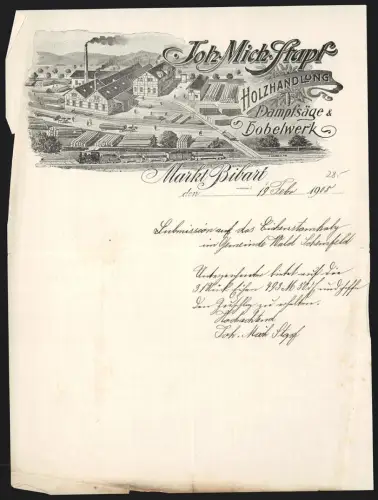 Joh. Mich. Stapf
HOLZHANDLUNG
Dampfsäge &
Hobelwerk
Markt Bibart
28.-
den 19 Febr 1908
Submission auf das Eichenstammholz
im Gemeinde Wald
Unterzeichneter bietet auf die
3 Stück Eichen 493 M
den Zuschlag zu erhalten.
Hochachtend
Joh. Mich Stapf